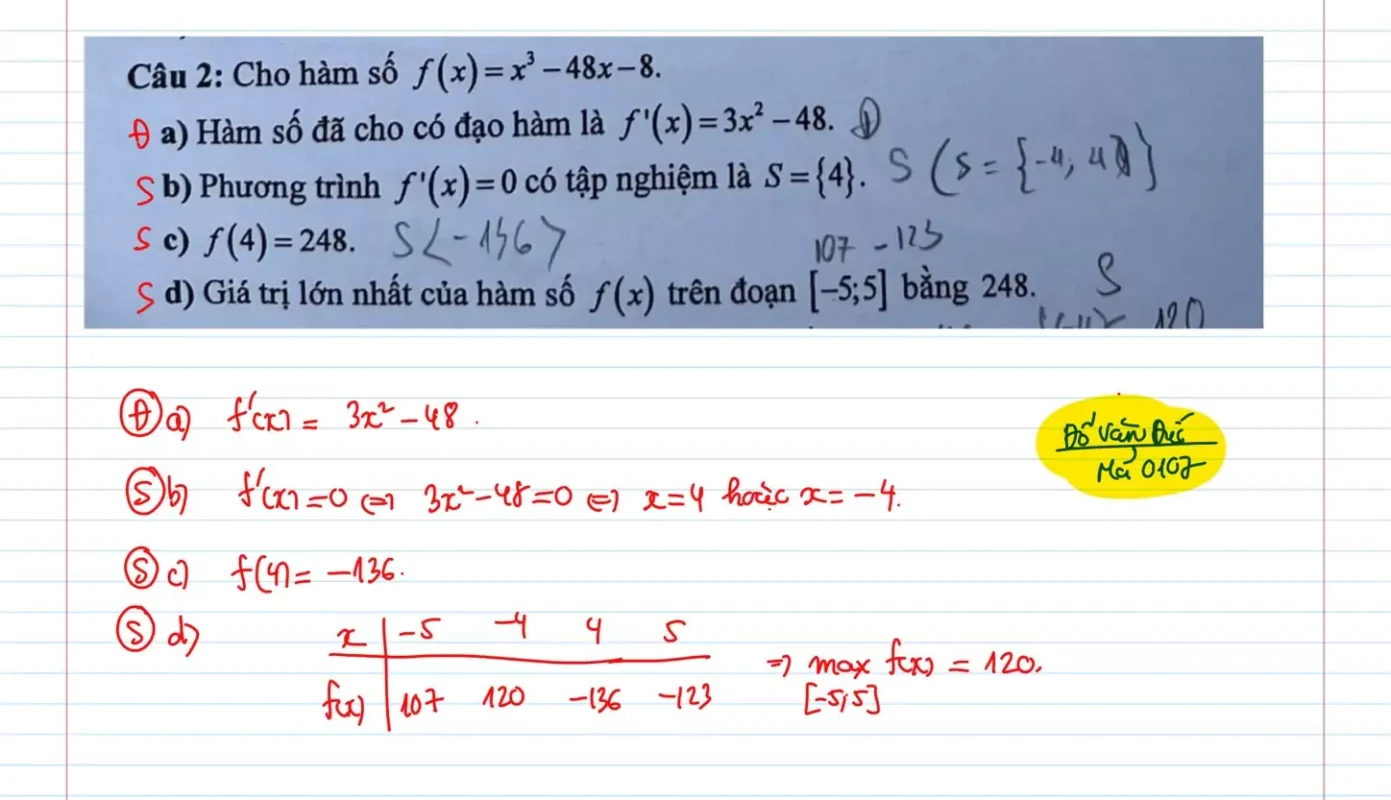 Câu 2: Cho hàm số f(x) = x³ − 48x − 8.
Đ a) Hàm số đã cho có đạo hàm là f'(x) = 3x² − 48. Đ
S b) Phương trình f'(x) = 0 có tập nghiệm là S = {4}. S (S = {-4; 4)}
S c) f(4) = 248. S < -136 >
107 -123
S d) Giá trị lớn nhất của hàm số f(x) trên đoạn [−5;5] bằng 248. S
120
Đ a) f'(x) = 3x² − 48.
Đỗ Văn Đức
Mã 0107
S b) f'(x) = 0 ⇔ 3x² − 48 = 0 ⇔ x = 4 hoặc x = −4.
S c) f(4) = −136.
S d) x | −5 −4 4 5
f(x) | 107 120 −136 −123
⇒ max f(x) = 120.
[−5;5]